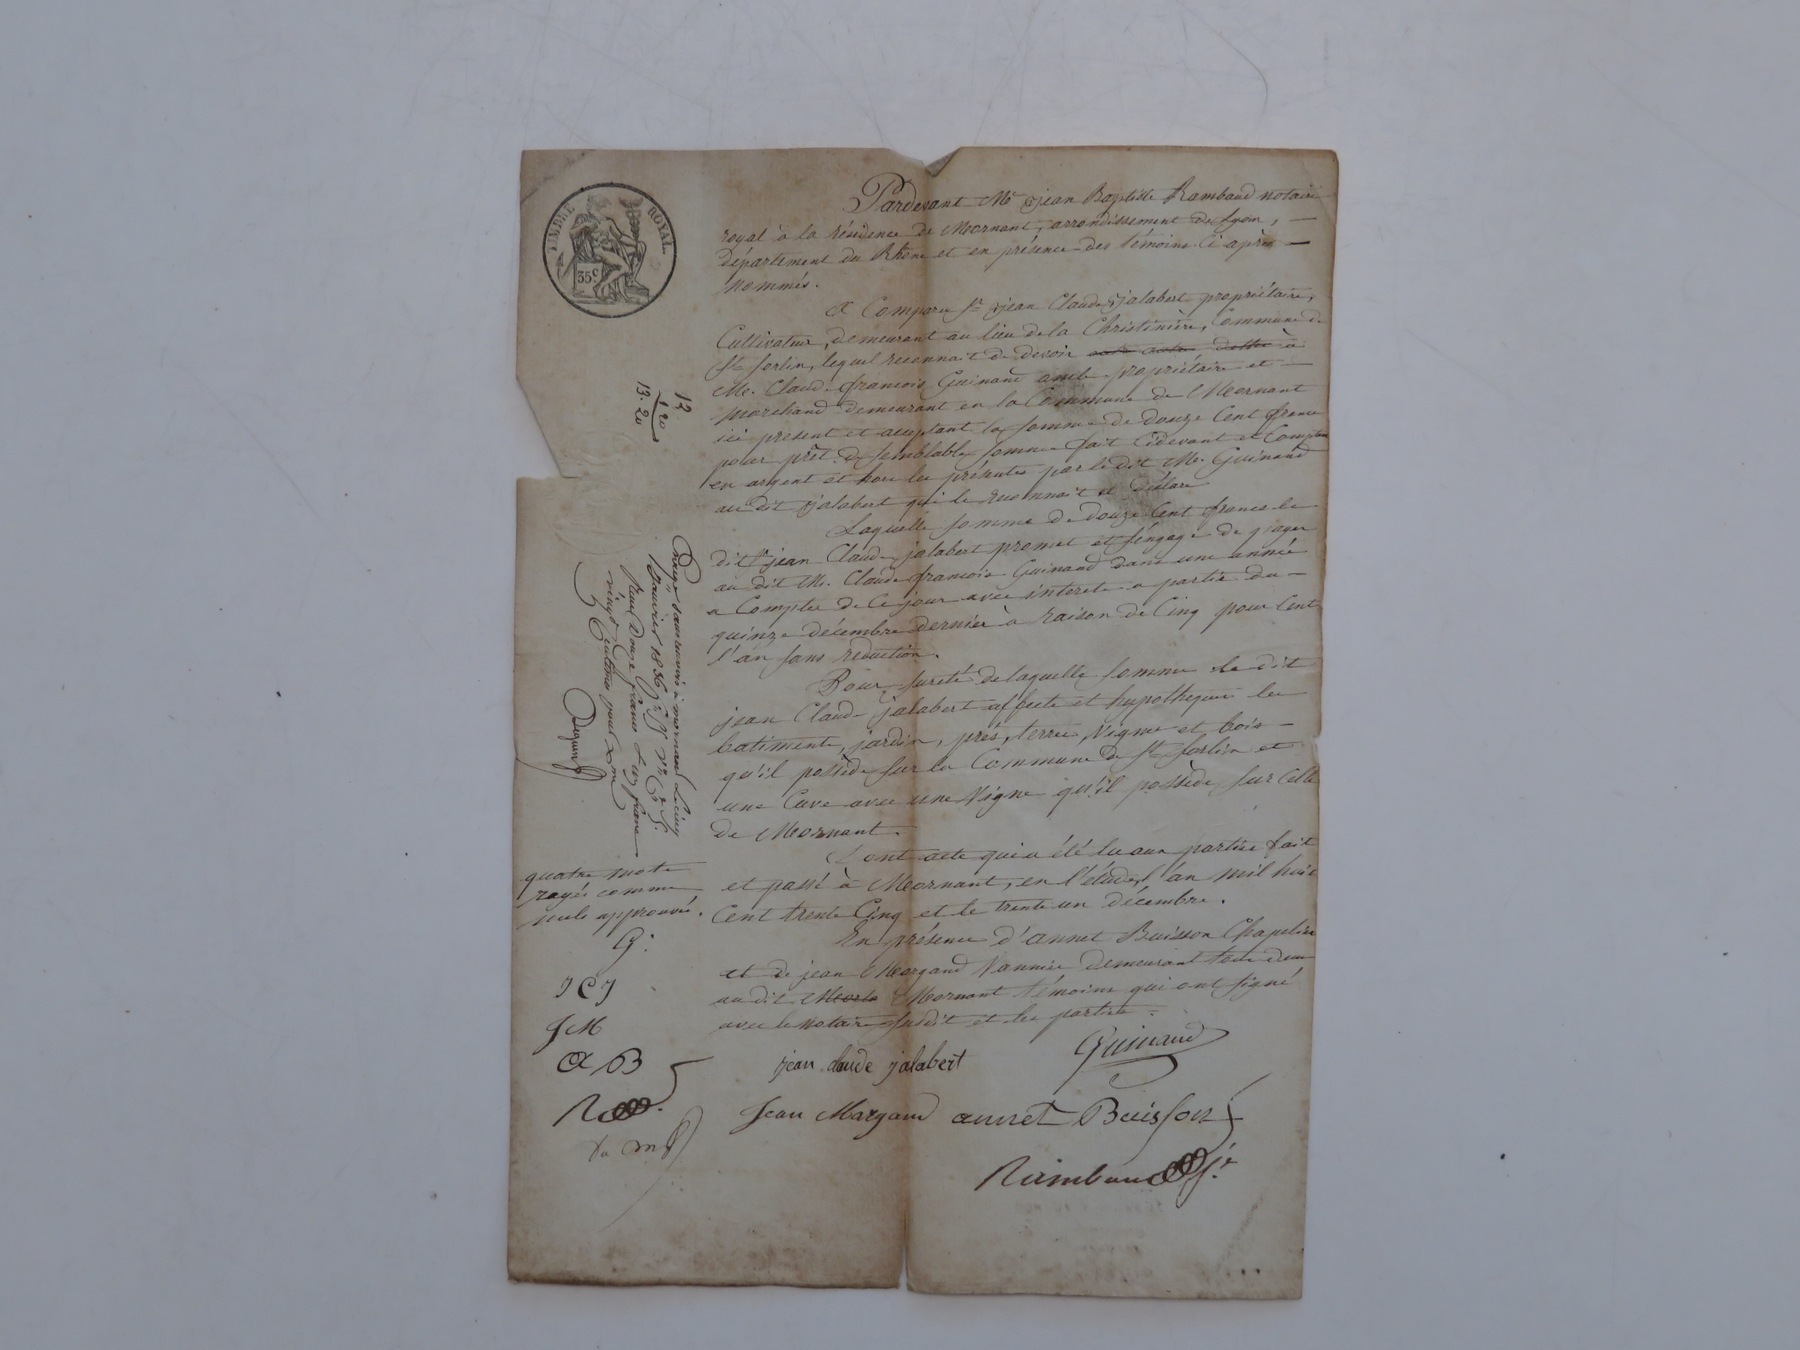 TIMBRE ROYAL
35c
Pardevant Me jean Baptiste Rambaud notaire
royal à la résidence de Mornant, arrondissement de Lyon, —
département du Rhône et en présence des témoins ci après —
nommés.
A Comparu Sr jean Claude jalabert propriétaire,
Cultivateur, demeurant au lieu de la Christinière, Commune de
St Sorlin, lequel reconnait de devoir à
Mr. Claude françois Guinand propriétaire et —
marchand demeurant en la Commune de Mornant
ici présent et acceptant la somme de douze Cent francs
pour prêt de semblable somme fait cidevant et Compté
en argent et hors les présentes par le dit Mr. Guinand
au dit jalabert qui le reconnait et déclare
Laquelle somme de douze Cent francs le
dit Sr jean Claude jalabert promet et s'engage de payer
au dit Mr. Claude françois Guinand dans une année
a Compter de Ce jour avec intérets a partir du —
quinze décembre dernier à raison de Cinq pour Cent
l'an sans réduction.
Pour sureté de laquelle somme le dit
jean Claude jalabert affecte et hypotheque les
batiments, jardin, prés, terres, Vignes et bois —
qu'il possède sur la Commune de St Sorlin et
une Cave avec une Vigne qu'il possède sur Celle
de Mornant.
Dont acte qui a été lu aux parties fait
et passé à Mornant, en l'étude, l'an mil huit
Cent trente Cinq et le trente un décembre.
En présence d'annet Buisson Chapelier
et de jean Margand Vannier demeurant tous deux
au dit Mornant témoins qui ont signé
avec le Notaire susdit et les parties.
12
1 20
13. 20
Enregistré à mornant Le cinq
Janvier 1836
Reçu Douze francs Dix francs
vingt Centimes pour
quatre mots
rayés comme
nuls approuvés.
G.
J C J
J M
A B
R
jean claude jalabert
Guinand
Jean Margand
annet Buisson
Rambaud